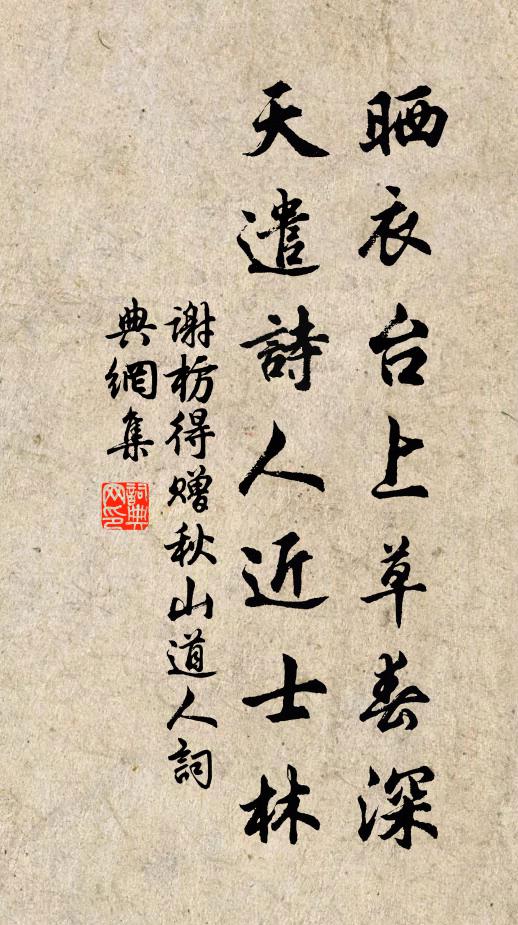 晒衣台上草春深
天遣詩人近士林
谢枋得赠秋山道人詞
典網集
詞典
网印